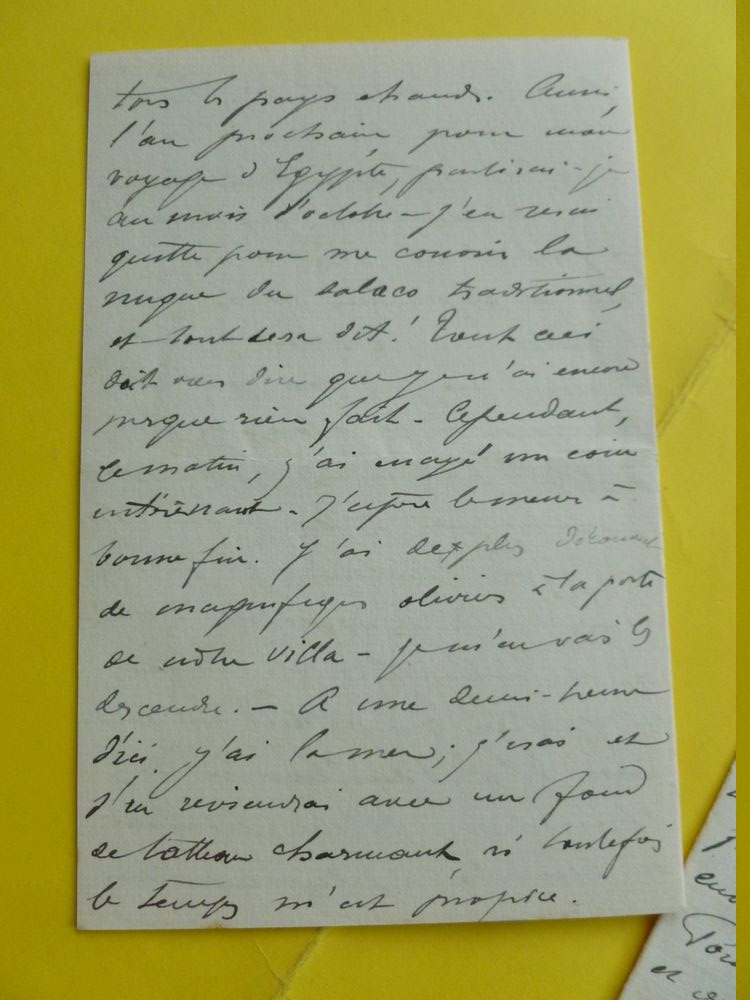 tous les pays chauds. Aussi,
l'an prochain pour mon
voyage d'Egypte, partirai-je
au mois d'octobre - J'en serai
quitte pour me couvrir la
nuque du salaco traditionnel,
et tout sera dit! Tout ceci
doit vous dire que je n'ai encore
presque rien fait - Cependant,
ce matin, j'ai essayé un coin
intéressant - J'espère le mener à
bonne fin. J'ai de plus
de magnifiques oliviers à la porte
de notre villa - je m'en vais les
descendre. - A une demi-heure
d'ici, j'ai la mer; j'irai et
j'en reviendrai avec un fond
de tableau charmant si toutefois
le temps m'est propice.
en
et